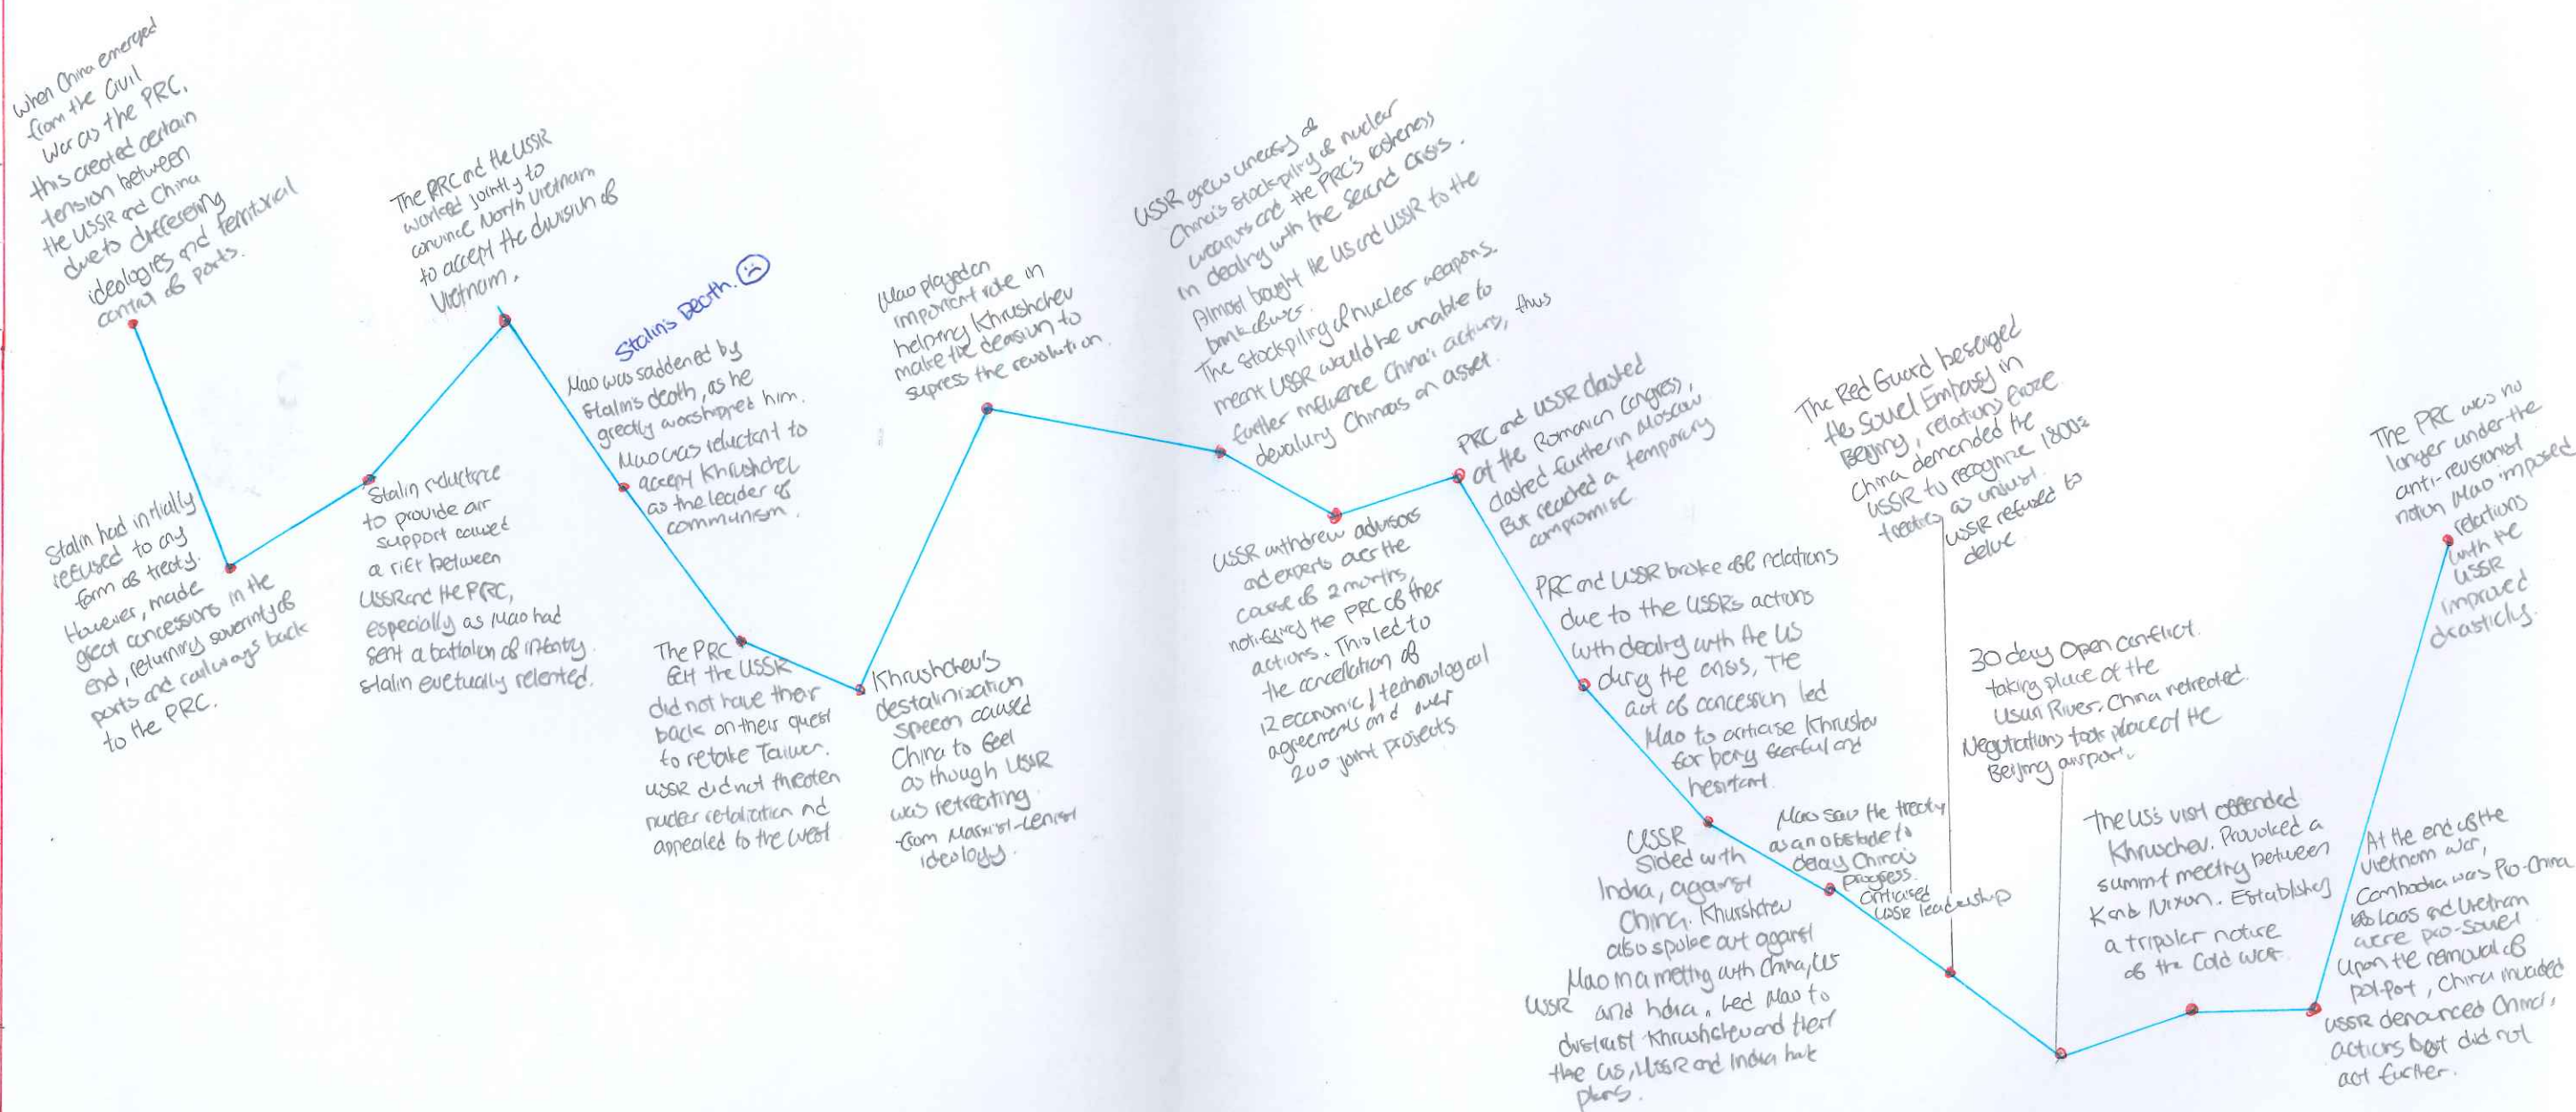 When China emerged
from the Civil
War as the PRC,
this created certain
tension between
the USSR and China
due to differering
ideologies and territorial
control of ports.
Stalin had initially
refused to any
form of treaty.
However, made
great concessions in the
end, returning soverinty of
ports and railways back
to the PRC.
Stalin reluctance
to provide air
support caused
a rift between
USSR and the PRC,
especially as Mao had
sent a battalion of infantry.
Stalin evetually relented.
The PRC and the USSR
worked jointly to
convince North Vietnam
to accept the division of
Vietnam.
Stalin's Death. ☹
Mao was saddened by
Stalin's death, as he
greatly worshipped him.
Mao was reluctant to
accept Khrushchev
as the leader of
communism.
The PRC
felt the USSR
did not have their
back on their quest
to retake Taiwan.
USSR did not threaten
nuclear retaliation and
appealed to the West
Khrushchev's
destalinization
speech caused
China to feel
as though USSR
was retreating
from Marxist-Lenist
ideology.
Mao played an
important role in
helping Khrushchev
make the decision to
supress the revolution.
USSR grew uneasy of
China's stockpiling of nuclear
weapons and the PRC's rasheness
in dealing with the second crisis.
Almost bought the US and USSR to the
brink of war.
The stockpiling of nuclear weapons.
meant USSR would be unable to
further influence China's actions, thus
devaluing China as an asset.
USSR withdrew advisors
and experts over the
course of 2 months,
notifying the PRC of their
actions. This led to
the cancellation of
12 economic / technological
agreements and over
200 joint projects
PRC and USSR clashed
at the Romanian Congress,
clashed further in Moscow
But reached a temporary
compromise.
PRC and USSR broke off relations
due to the USSR's actions
with dealing with the US
during the crisis, The
act of concession led
Mao to criticise Khrushev
for being fearful and
hesitant.
USSR
Sided with
India, against
China. Khurshchev
also spoke out against
Mao in a metting with China, US
USSR and India. Led Mao to
distrust Khrushchev and
the US, USSR and India
plans.
Mao saw the treaty
as an obstacle to
delay China's
progress.
Criticised
USSR leadership
The Red Guard beseiged
the Soviet Embassy in
Beijing, relations froze
China demanded the
USSR to recognize 1800s
treaties as unjust.
USSR refused to
30 day Open conflict
taking place at the
Usuri River. China retreated.
Negotiations took place at the
Beijing airport.
The US's visit offended
Khruschev. Provoked a
summit meeting between
K and Nixon. Establishing
a tripolar nature
of the Cold war.
At the end of the
Vietnam war,
Cambodia was Pro-China
Laos and Vietnam
were pro-Soviet
Upon the removal of
pol-pot, China invaded
USSR denounced China's
actions but did not
act further.
The PRC was no
longer under the
anti-revisionist
notion Mao imposed
relations
with the
USSR
improved
drasticly.